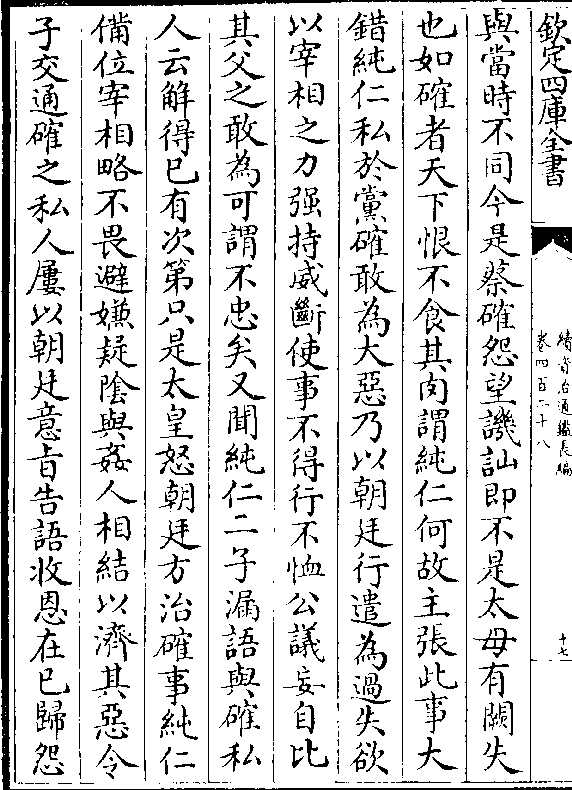 欽定四庫全書
續資治通鑑長編
卷四百二十八
十七
與當時不同今是蔡確怨望譏訕即不是太母有闕失
也如確者天下恨不食其肉謂純仁何故主張此事大
錯純仁私於黨確敢為大惡乃以朝廷行遣為過失欲
以宰相之力强持威斷使事不得行不恤公議妄自比
其父之敢為可謂不忠矣又聞純仁二子漏語與確私
人云解得已有次第只是太皇怒朝廷方治確事純仁
備位宰相略不畏避嫌疑陰與姦人相結以濟其惡令
子交通確之私人屢以朝廷意㫖告語收恩在已歸怨